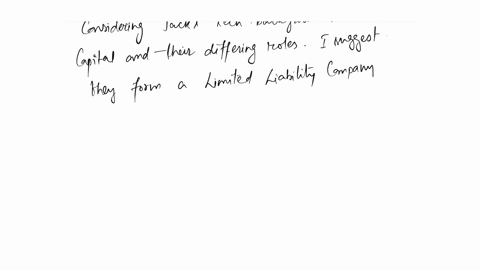 Considering Jack's
Capital and their differing roles. I suggest
they form a Limited Liability Company